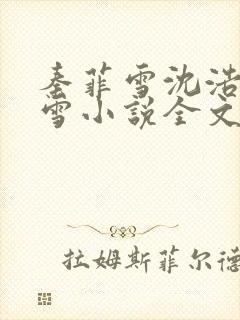 秦菲雪沈浩
雪小说全文
拉姆斯菲尔德